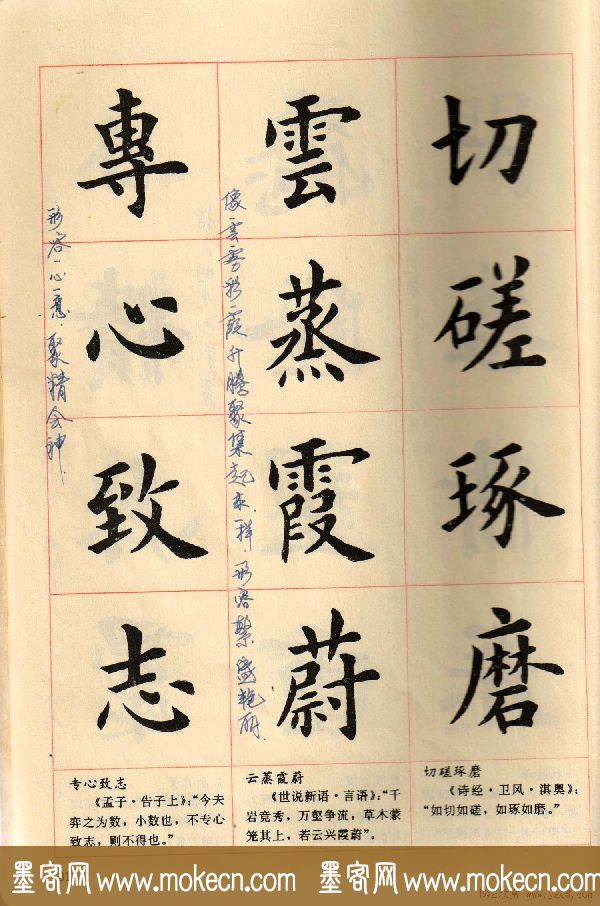 切磋琢磨
雲蒸霞蔚
像雲雾彩霞升腾聚集起来一样 形容繁盛艳丽
專心致志
形容一心一意.聚精会神
切磋琢磨
《诗经·卫风·淇奥》:
“如切如磋，如琢如磨。”
云蒸霞蔚
《世说新语·言语》:“千
岩竞秀，万壑争流，草木蒙
笼其上，若云兴霞蔚”。
专心致志
《孟子·告子上》:“今夫
弈之为数，小数也，不专心
致志，则不得也。”
墨客网 www.mokecn.com 墨客网 www.mokecn.com